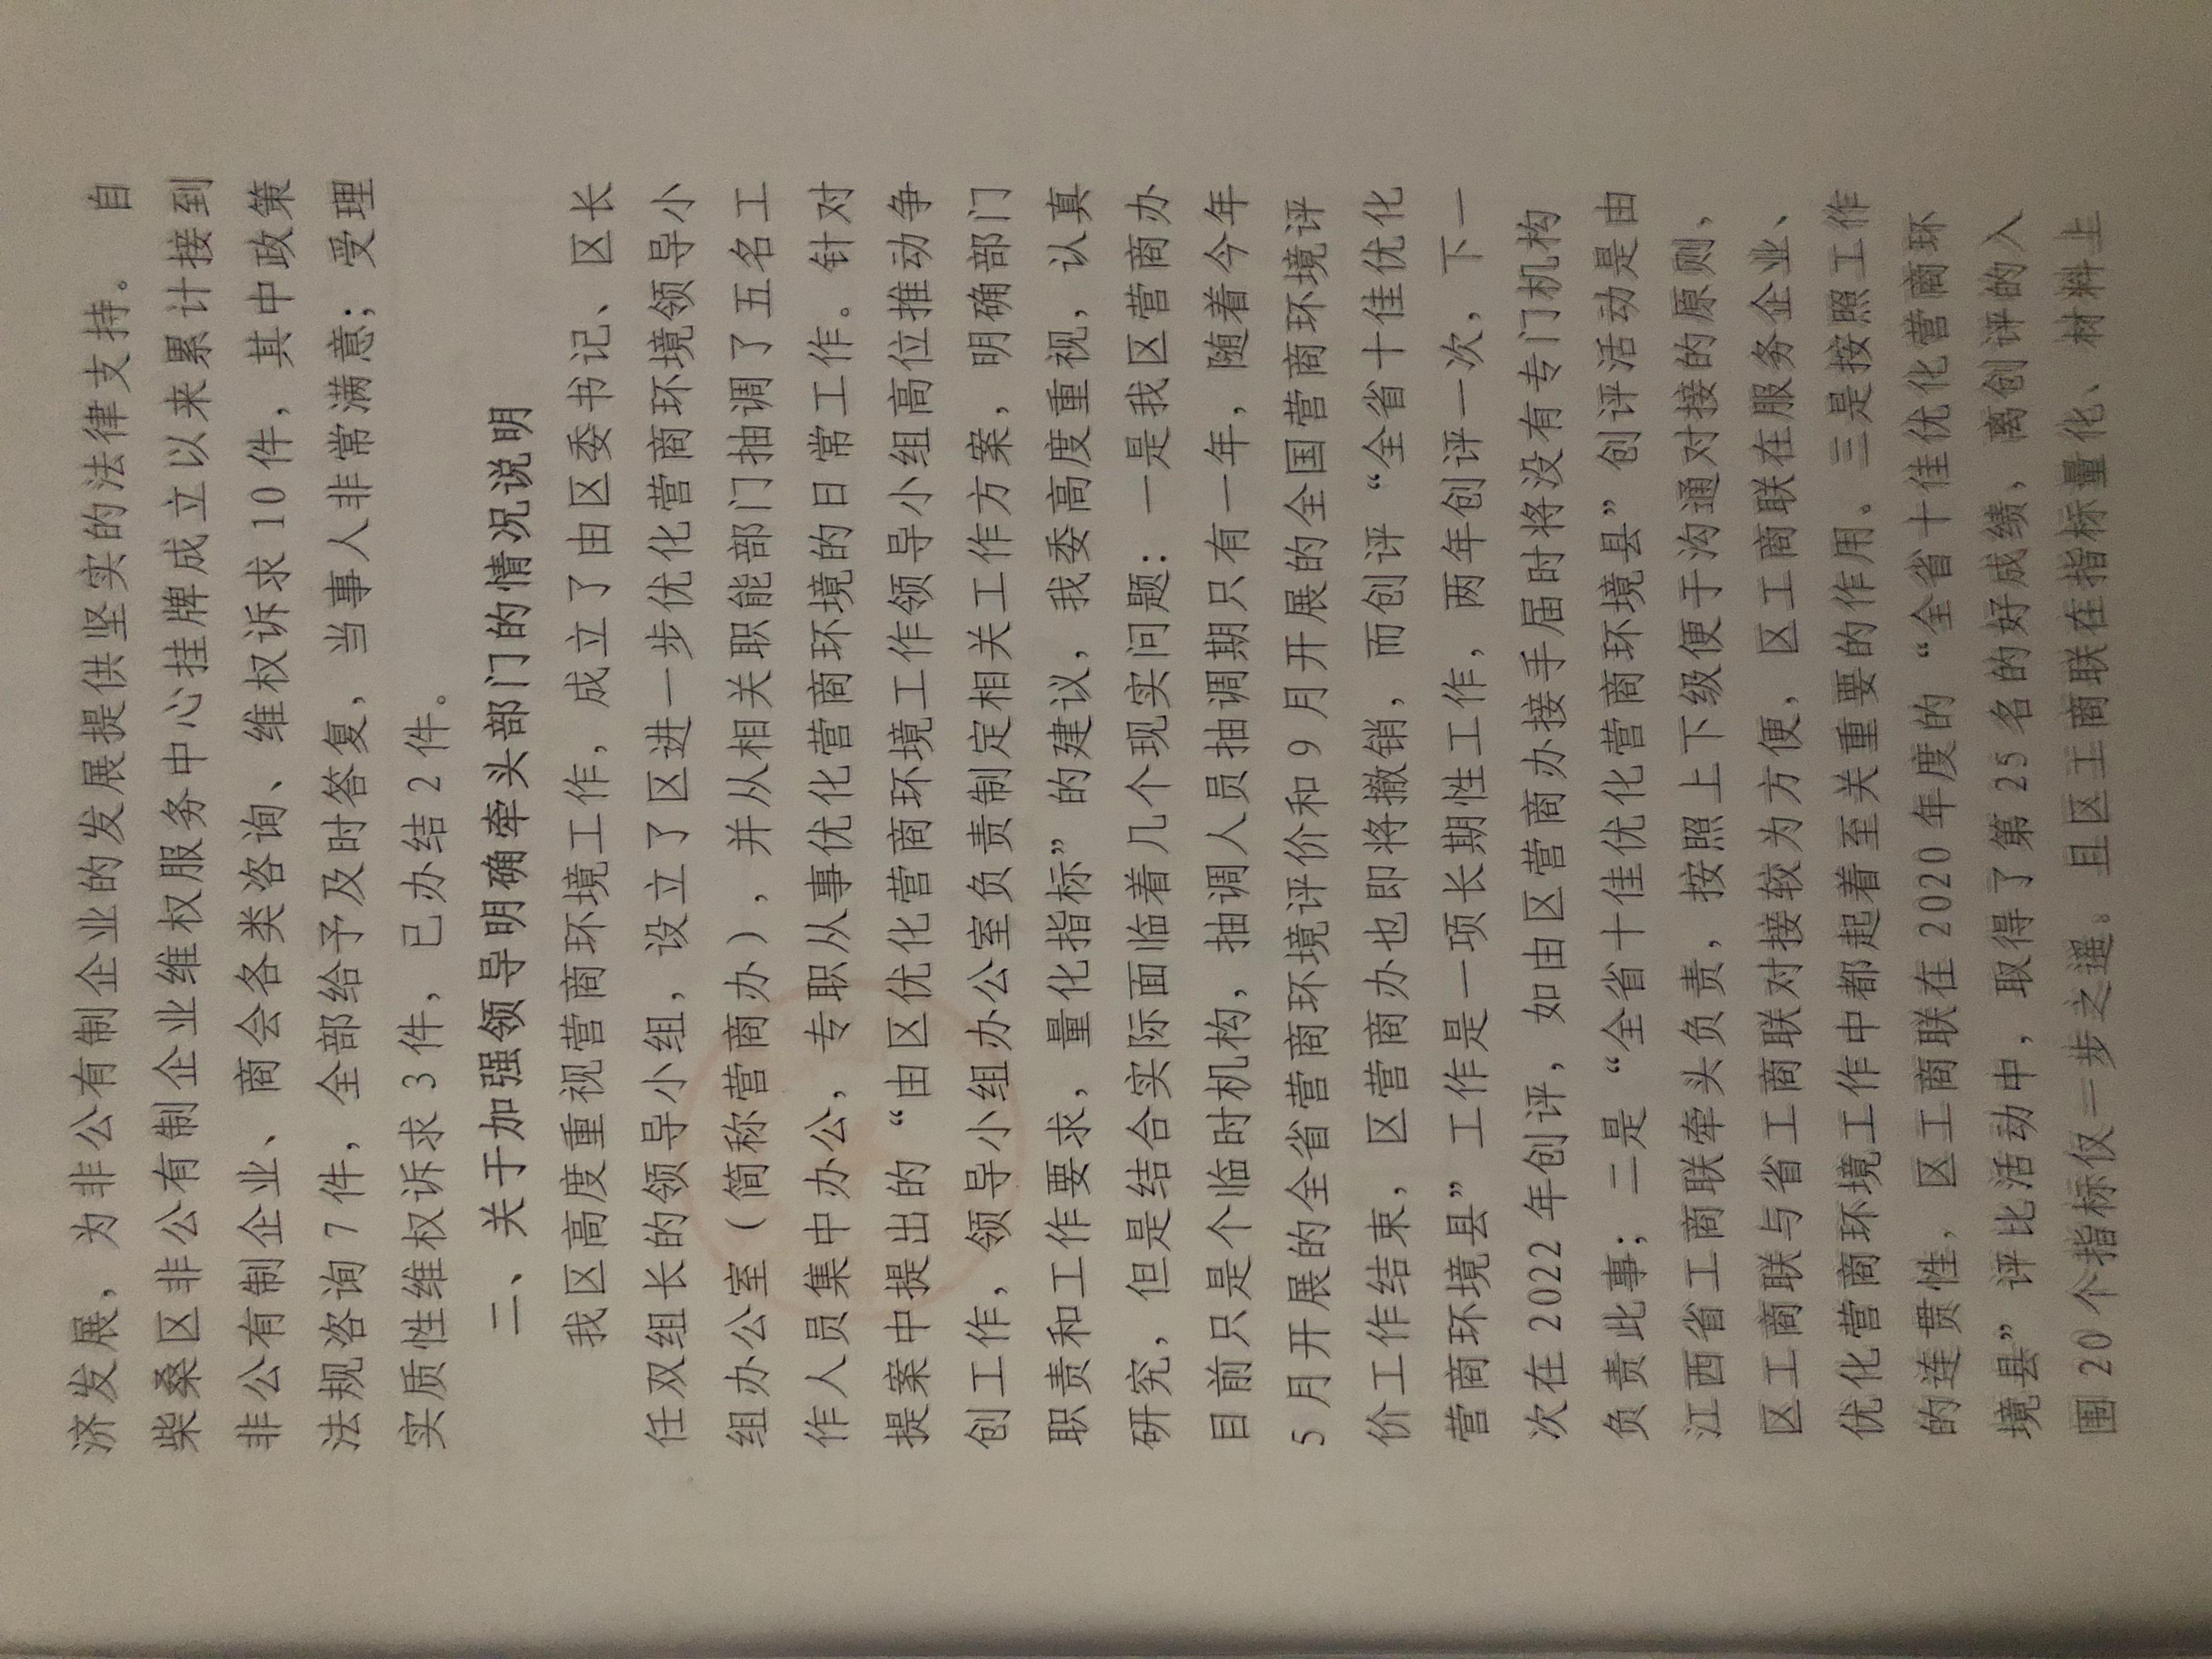 济发展，为非公有制企业的发展提供坚实的法律支持。自
柴桑区非公有制企业维权服务中心挂牌成立以来累计接到
非公有制企业、商会各类咨询、维权诉求 10 件，其中政策
法规咨询 7 件，全部给予及时答复，当事人非常满意；受理
实质性维权诉求 3 件，已办结 2 件。
二、关于加强领导明确牵头部门的情况说明
我区高度重视营商环境工作，成立了由区委书记、区长
任双组长的领导小组，设立了区进一步优化营商环境领导小
组办公室（简称营商办），并从相关职能部门抽调了五名工
作人员集中办公，专职从事优化营商环境的日常工作。针对
提案中提出的“由区优化营商环境工作领导小组高位推动争
创工作，领导小组办公室负责制定相关工作方案，明确部门
职责和工作要求，量化指标”的建议，我委高度重视，认真
研究，但是结合实际面临着几个现实问题：一是我区营商办
目前只是个临时机构，抽调人员抽调期只有一年，随着今年
5 月开展的全省营商环境评价和 9 月开展的全国营商环境评
价工作结束，区营商办也即将撤销，而创评“全省十佳优化
营商环境县”工作是一项长期性工作，两年创评一次，下一
次在 2022 年创评，如由区营商办接手届时将没有专门机构
负责此事；二是“全省十佳优化营商环境县”创评活动是由
江西省工商联牵头负责，按照上下级便于沟通对接的原则，
区工商联与省工商联对接较为方便，区工商联在服务企业、
优化营商环境工作中都起着至关重要的作用。三是按照工作
的连贯性，区工商联在 2020 年度的“全省十佳优化营商环
境县”评比活动中，取得了第 25 名的好成绩，离创评的入
围 20 个指标仅一步之遥。且区工商联在指标量化、材料上